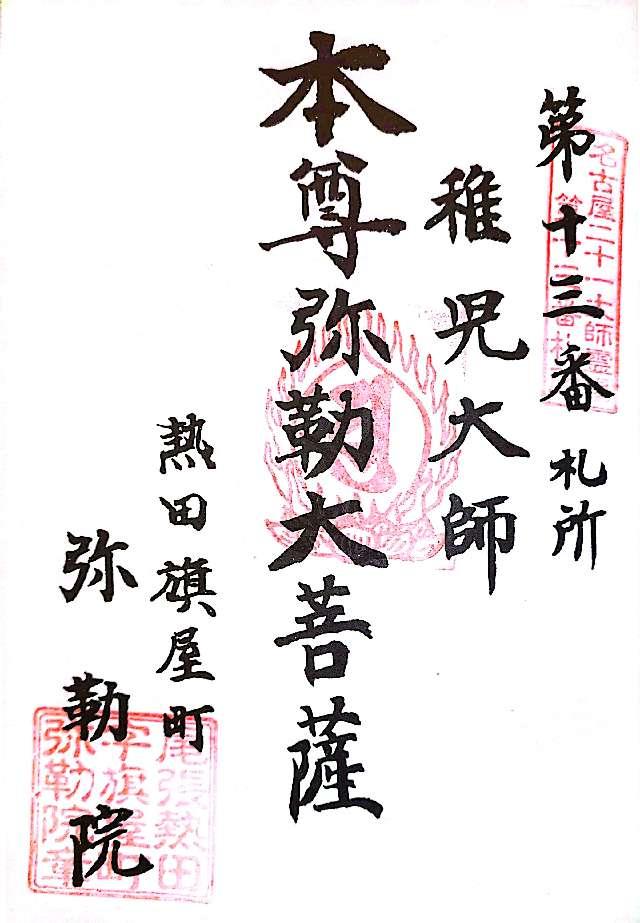 第十三番札所
名古屋二十一大師霊
第十三番札
稚児大師
本尊弥勒大菩薩
熱田旗屋町
弥勒院
尾張熱田
字旗屋町
弥勒院章